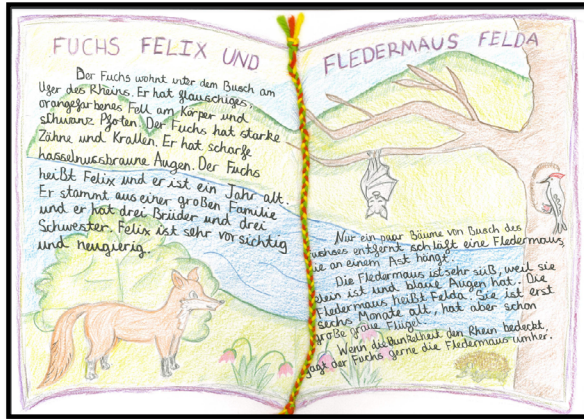 FUCHS FELIX UND
Der Fuchs wohnt unter dem Busch am
Ufer des Rheins. Er hat flauschiges,
orangefarbenes Fell am Körper und
schwarze Pfoten. Der Fuchs hat starke
Zähne und Krallen. Er hat scharfe
hasselnussbraune Augen. Der Fuchs
heißt Felix und er ist ein Jahr alt.
Er stammt aus einer großen Familie
und er hat drei Brüder und drei
Schwester. Felix ist sehr vorsichtig
und neugierig.
FLEDERMAUS FELDA
Nur ein paar Bäume von Busch des
Fuchses entfernt schläft eine Fledermaus,
die an einem Ast hängt.
Die Fledermaus ist sehr süß, weil sie
klein ist und blaue Augen hat. Die
Fledermaus heißt Felda. Sie ist erst
sechs Monate alt, hat aber schon
große graue Flügel.
Wenn die Dunkelheit den Rhein bedeckt,
jagt der Fuchs gerne die Fledermaus umher.